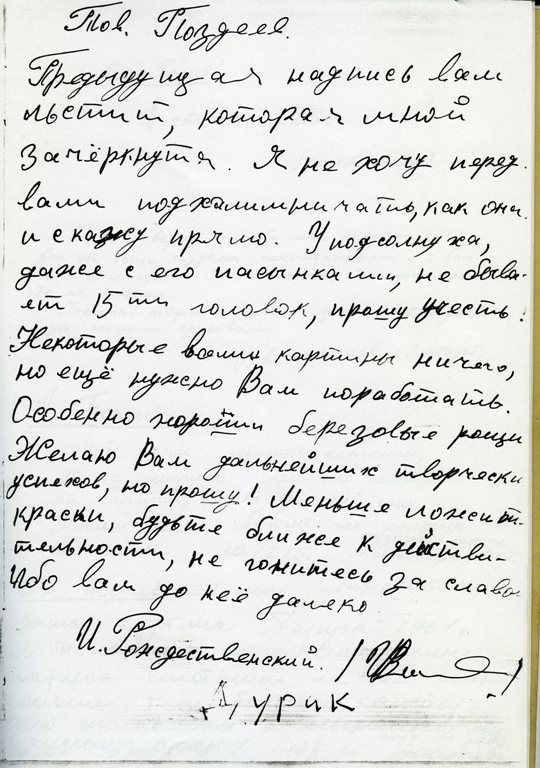 Тов. Поздеев.
Предыдущая надпись вам
льстит, которая мной
зачёркнута. Я не хочу перед
вами подхалимничать, как они
и скажу прямо. У подсолнуха,
даже с его пасынками, не быва-
ет 15ти головок, прошу учесть!
Некоторые ваши картины ничего,
но ещё нужно Вам поработать.
Особенно хороши березовые рощи
Желаю Вам дальнейших творчески
успехов, но прошу! Меньше ложит
краски, будьте ближе к действи-
тельности, не гонитесь за славо
Ибо вам до неё далеко.
И. Рождественский.
Дурик